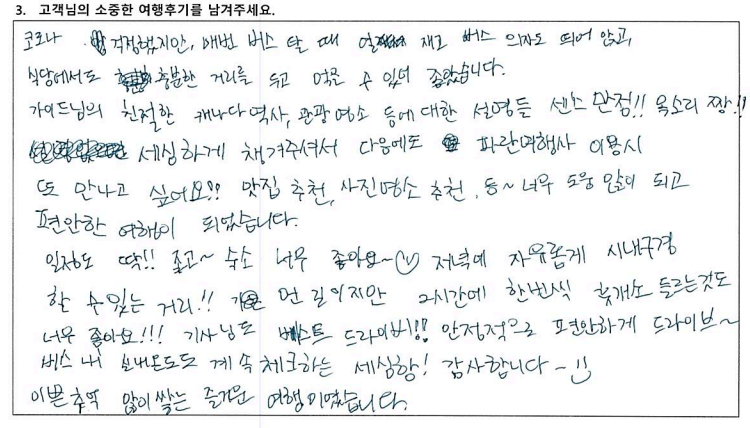 3. 고객님의 소중한 여행후기를 남겨주세요.
코로나 걱정했지만, 매번 버스 탈 때 열 재고 버스 의자도 띄어 앉고,
식당에서도 충분한 거리를 두고 먹을 수 있어 좋았습니다.
가이드님의 친절한 캐나다 역사, 관광명소 등에 대한 설명들 센스 만점!! 목소리 짱!!
세심하게 챙겨주셔서 다음에도 파란여행사 이용시
또 만나고 싶어요!! 맛집 추천, 사진명소 추천, 등~ 너무 도움 많이 되고
편안한 여행이 되었습니다.
일정도 딱!! 좋고~ 숙소 너무 좋아요~ 저녁에 자유롭게 시내구경
할 수 있는 거리!! 먼 길이지만 2시간에 한번씩 휴개소 들르는것도
너무 좋아요!!! 기사님도 베스트 드라이버!! 안정적으로 편안하게 드라이브~
버스 내 실내온도도 계속 체크하는 세심함! 감사합니다~
이쁜 추억 많이 쌓는 즐거운 여행이었습니다.